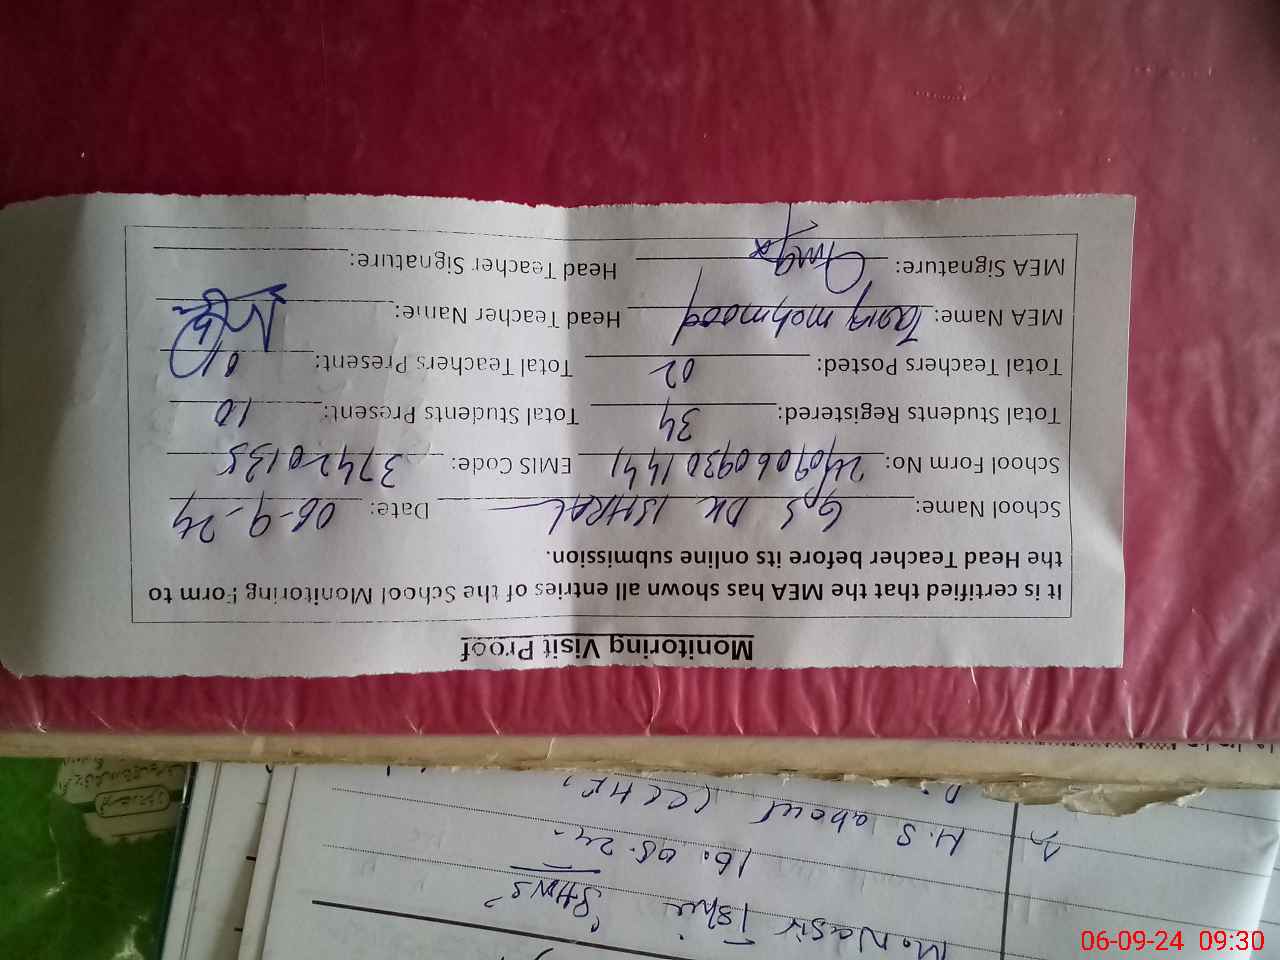 Monitoring Visit Proof
It is certified that the MEA has shown all entries of the School Monitoring Form to
the Head Teacher before its online submission.
School Name: GPS DK ISHRAL Date: 06-9-24
School Form No: 24090609301441 EMIS Code: 37420135
Total Students Registered: 34 Total Students Present: 10
Total Teachers Posted: 02 Total Teachers Present: 01
MEA Name: Tariq mehmood Head Teacher Name:
MEA Signature: Head Teacher Signature:
M. Nasir
16.08.24
H.S about
06-09-24 09:30